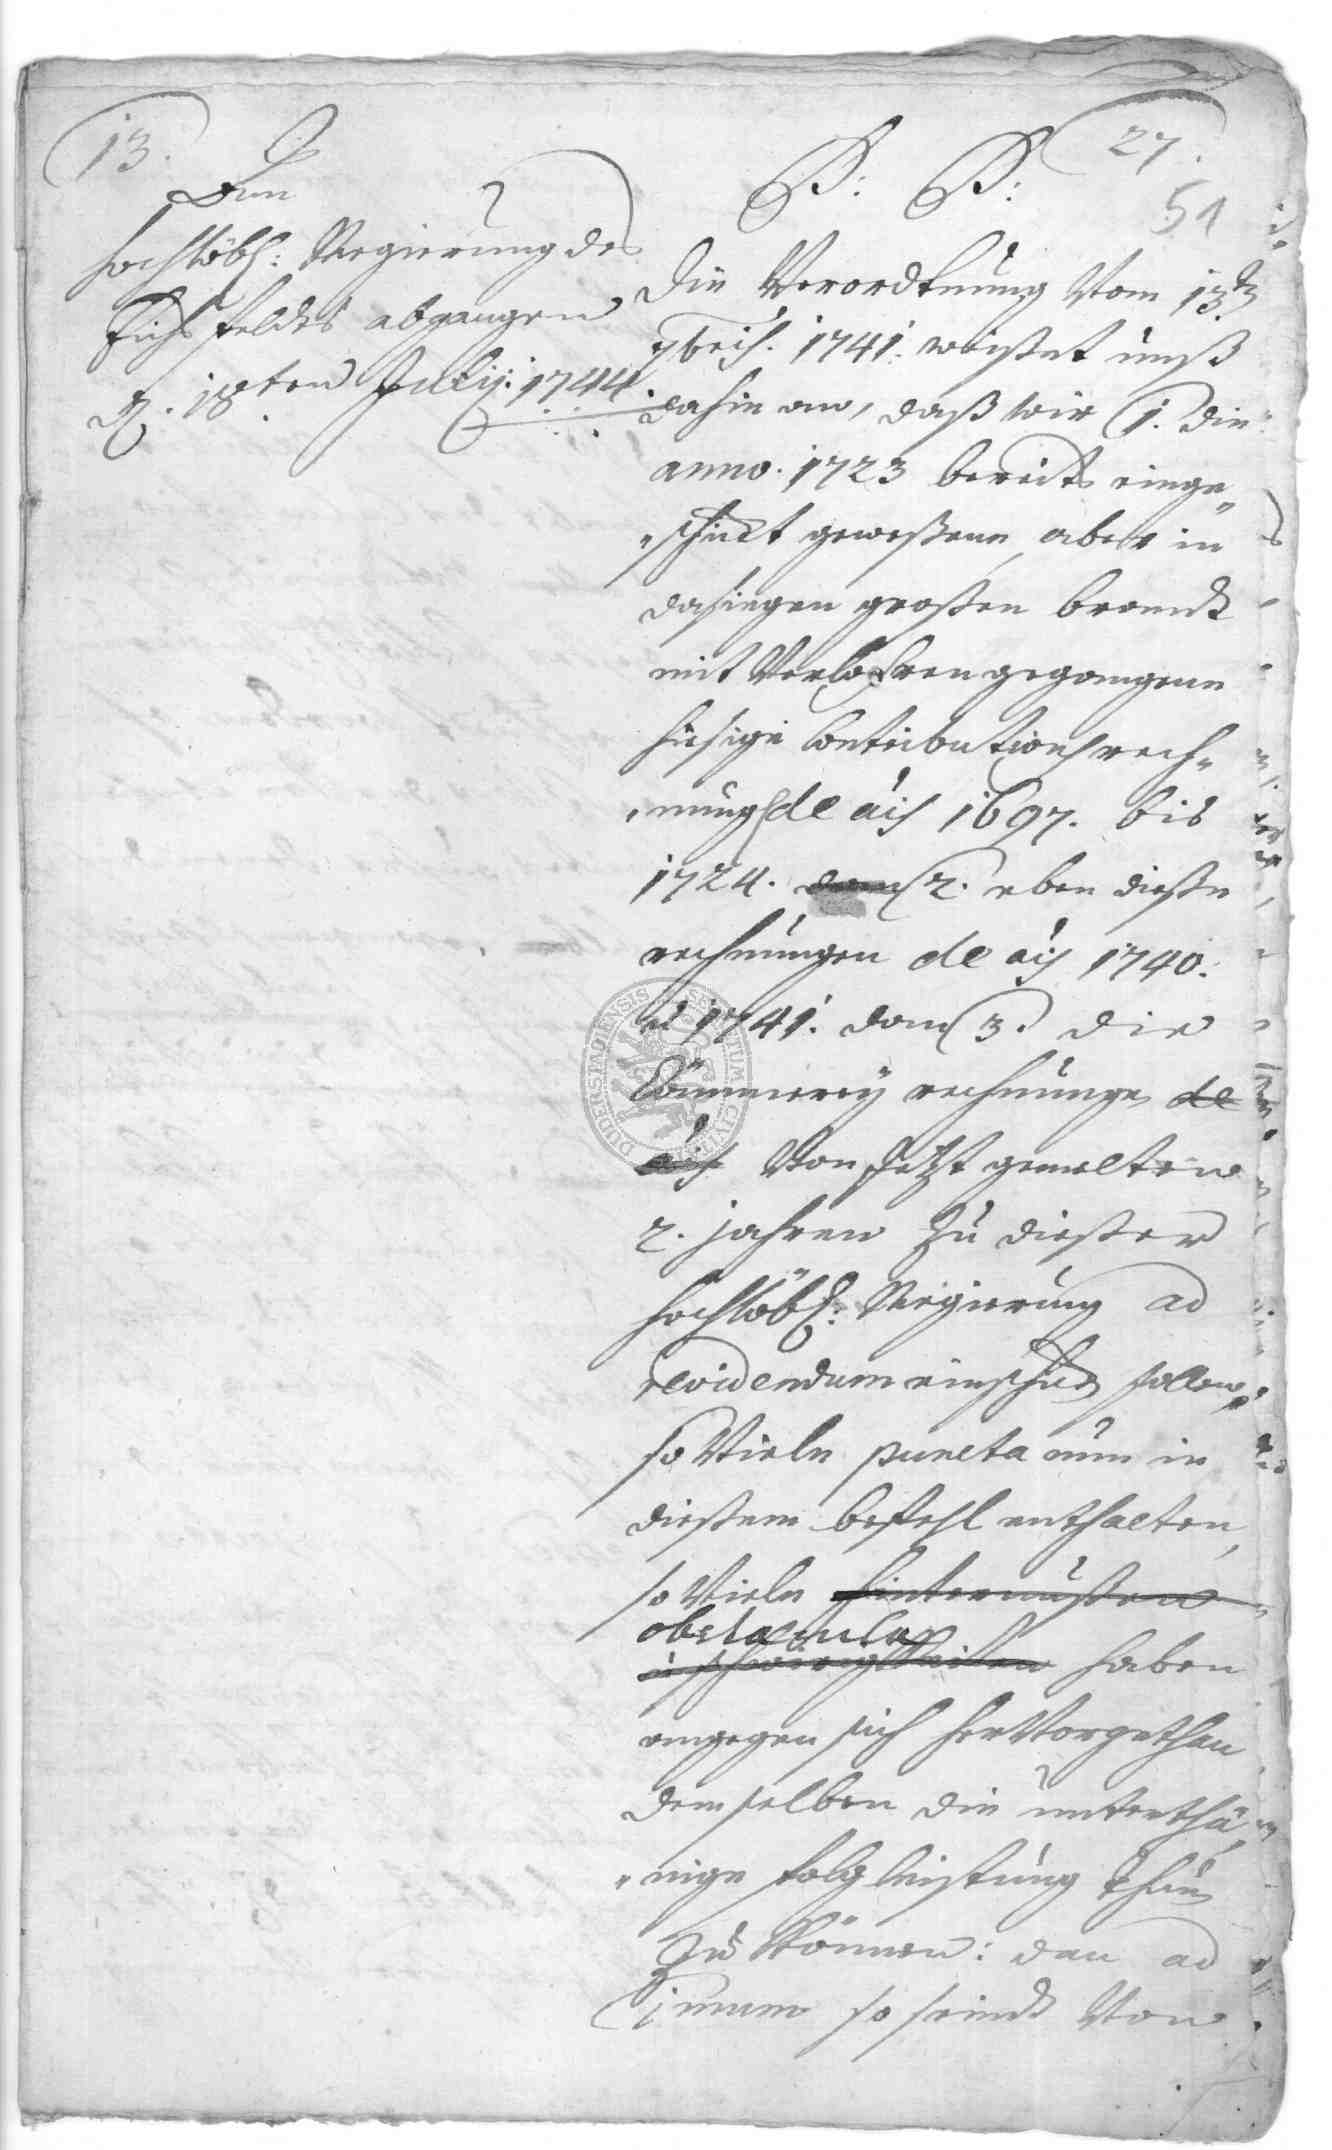 13.
An
hochlöbl: Regierung des
Eichsfeldes abgangen
d. 18ten Julij: 1744.
27.
51
P: P:
Die Verordtnung Vom 13ten
7bris. 1741. weißet unß
dahin an, daß wir 1. die
anno. 1723 bereits einge„
„schickt geweßene, aber in
dasiegen großen brandt
mit Verlohren gegangene
hiesige Contributions rech„
„nung de ais 1697. bis
1724. dann 2. eben dieße
rechnungen de ais 1740.
et 1741. dann 3. die
Cämmerey rechnunge de
ais Von Jetzt gemelten
2. jahren zu dießer
hochlöbl: Regierung ad
revidendum einschick sollen,
so Viele puncta nun in
dießem befehl enthalten,
so Viele hinternüßen
obstacula
u schwürigkeiten haben
engegen sich herVorgethan
demselben die unterthä„
„nige folgleistung thun
zu können: dan ad
1mum so seindt Von
DUDERSTADIENSIS
CIVIT